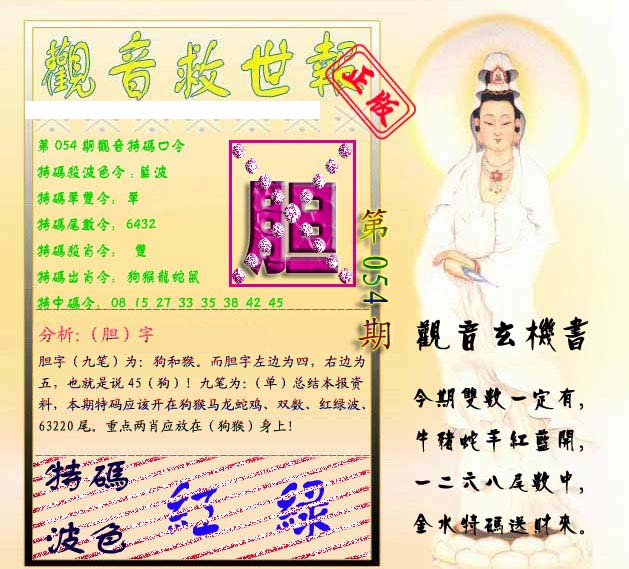 觀音救世報
正版
第054期觀音特碼口令
特碼殺波色令：藍波
特碼單雙令： 單
特碼尾數令： 6432
特碼殺肖令： 雙
特碼出肖令： 狗猴龍蛇鼠
特中碼令： 08 15 27 33 35 38 42 45
胆
第054期
分析：（胆）字
胆字（九笔）为：狗和猴。而胆字左边为四，右边为
五，也就是说45（狗）！九笔为：（单）总结本报资
料，本期特码应该开在狗猴马龙蛇鸡、双数、红绿波、
63220尾。重点两肖应放在（狗猴）身上！
特碼
波色
紅 綠
觀音玄機書
今期雙數一定有，
牛豬蛇羊紅藍開，
一二六八尾數中，
金水特碼送財來。